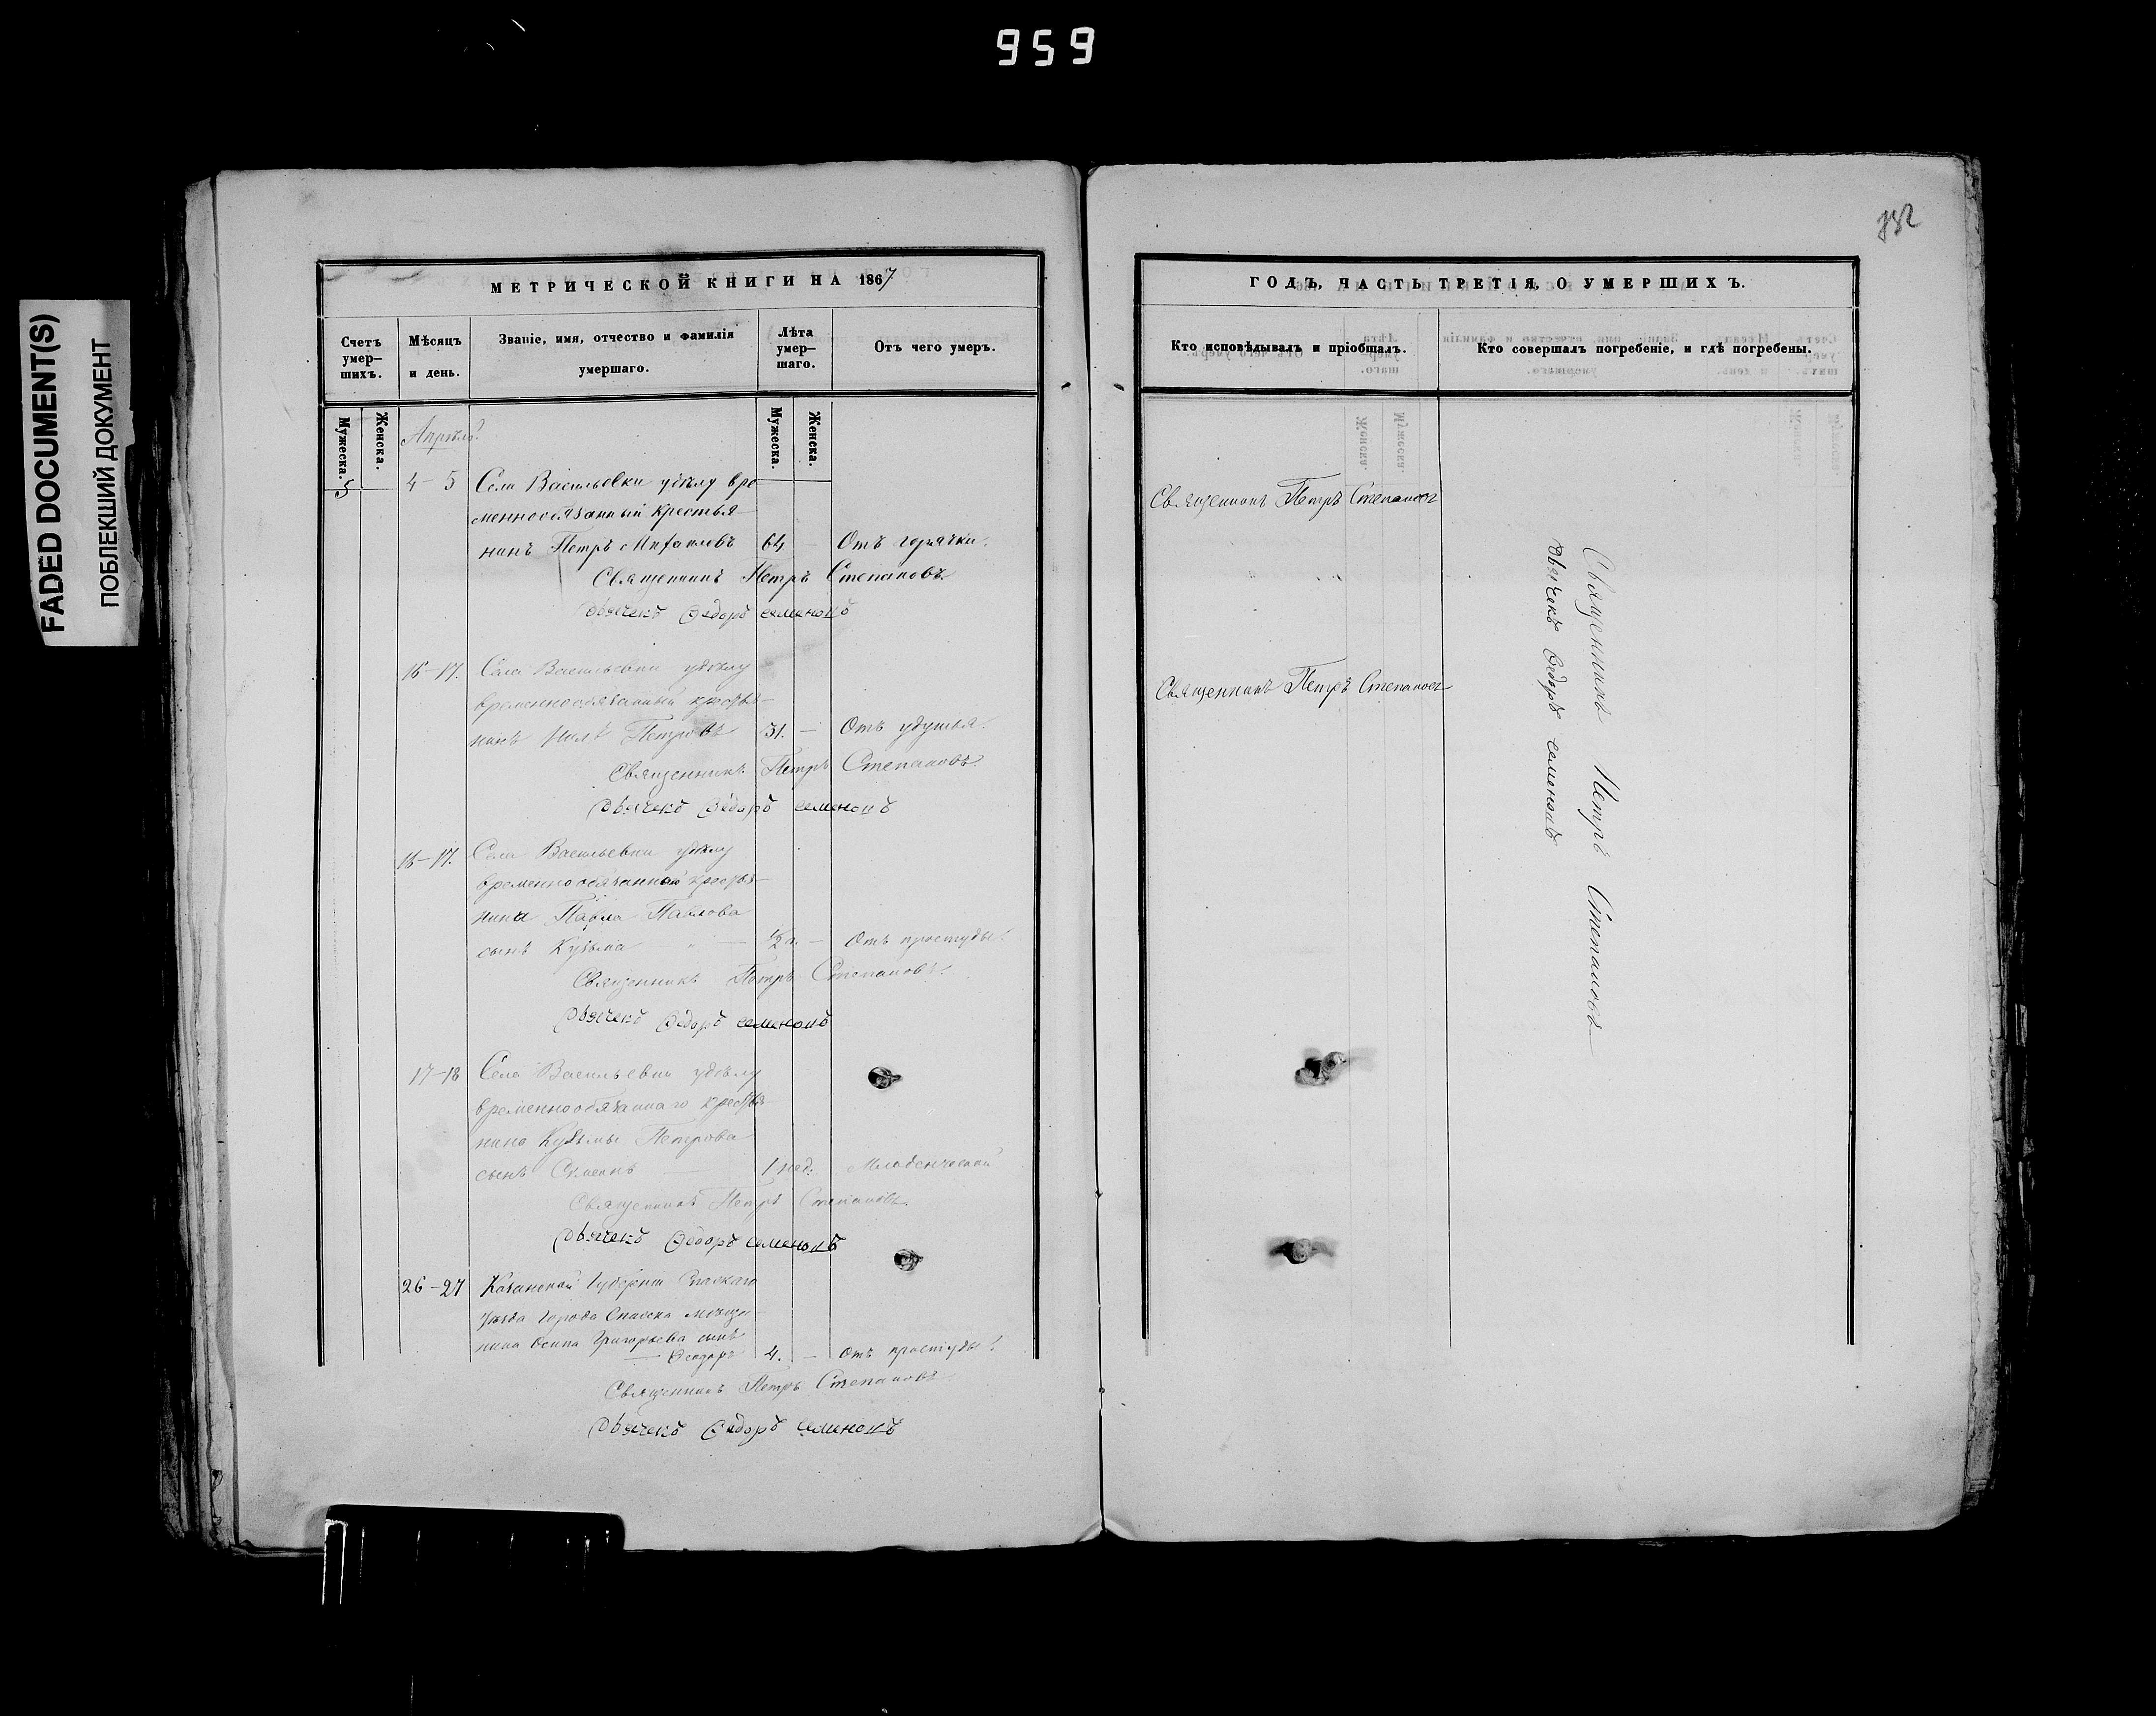 959
FADED DOCUMENT(S)
ПОБЛЕКШИЙ ДОКУМЕНТ
МЕТРИЧЕСКОЙ КНИГИ НА 1867
Счетъ умер–шихъ.
Мѣсяцъ и день.
Званіе, имя, отчество и фамилія умершаго.
Лѣта умер–шаго.
Отъ чего умеръ.
Мужеска.
Женска.
Мужеска.
Женска.
Апрель
5 4–5 Села Васильевки удѣлу вре
меннообязанный крестья
нинъ Петръ Михаиловъ 64. – Отъ горячки.
Священникъ Петръ Степановъ
Дьячекъ Ѳедоръ Семеновъ
16–17. Села Васильевки удѣлу
временнообязанный кресть–
нинъ Петровъ 31. – Отъ удушья.
Священникъ Петръ Степановъ
Дьячекъ Ѳедоръ Семеновъ
16–17. Села Васильевки удѣлу
временнообязанный кресть–
нина Павла Павлова
сынъ Кузьма – Отъ простуды.
Священникъ Петръ Степановъ.
Дьячекъ Ѳедоръ Семеновъ
17–18 Села Васильевки удѣлу
временнообязаннаго кресть–
нина Кузьмы Петрова
сынъ 1 нед. Младенческой
Священникъ Петръ Степановъ.
Дьячекъ Ѳедоръ Семеновъ
26–27 Казанской Губерніи Спаскаго
уѣзда Города Спасска мѣщан–
нина Осипа Григорьева сынъ
– Ѳедоръ 4. – Отъ простуды.
Священникъ Петръ Степановъ
Дьячекъ Ѳедоръ Семеновъ
782
ГОДЪ, ЧАСТЬ ТРЕТІЯ, О УМЕРШИХЪ.
Кто исповѣдывалъ и пріобщалъ.
Кто совершалъ погребеніе, и гдѣ погребены.
Священникъ Петръ Степановъ
Священникъ Петръ Степановъ
Священникъ Петръ Степановъ
Дьячекъ Ѳедоръ Семеновъ